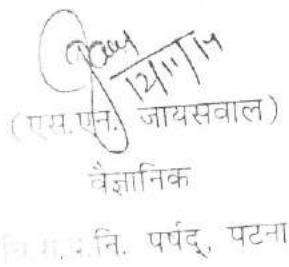 12/11/14
(एस.एन. जायसवाल)
वैज्ञानिक
नि. पर्षद्, पटना